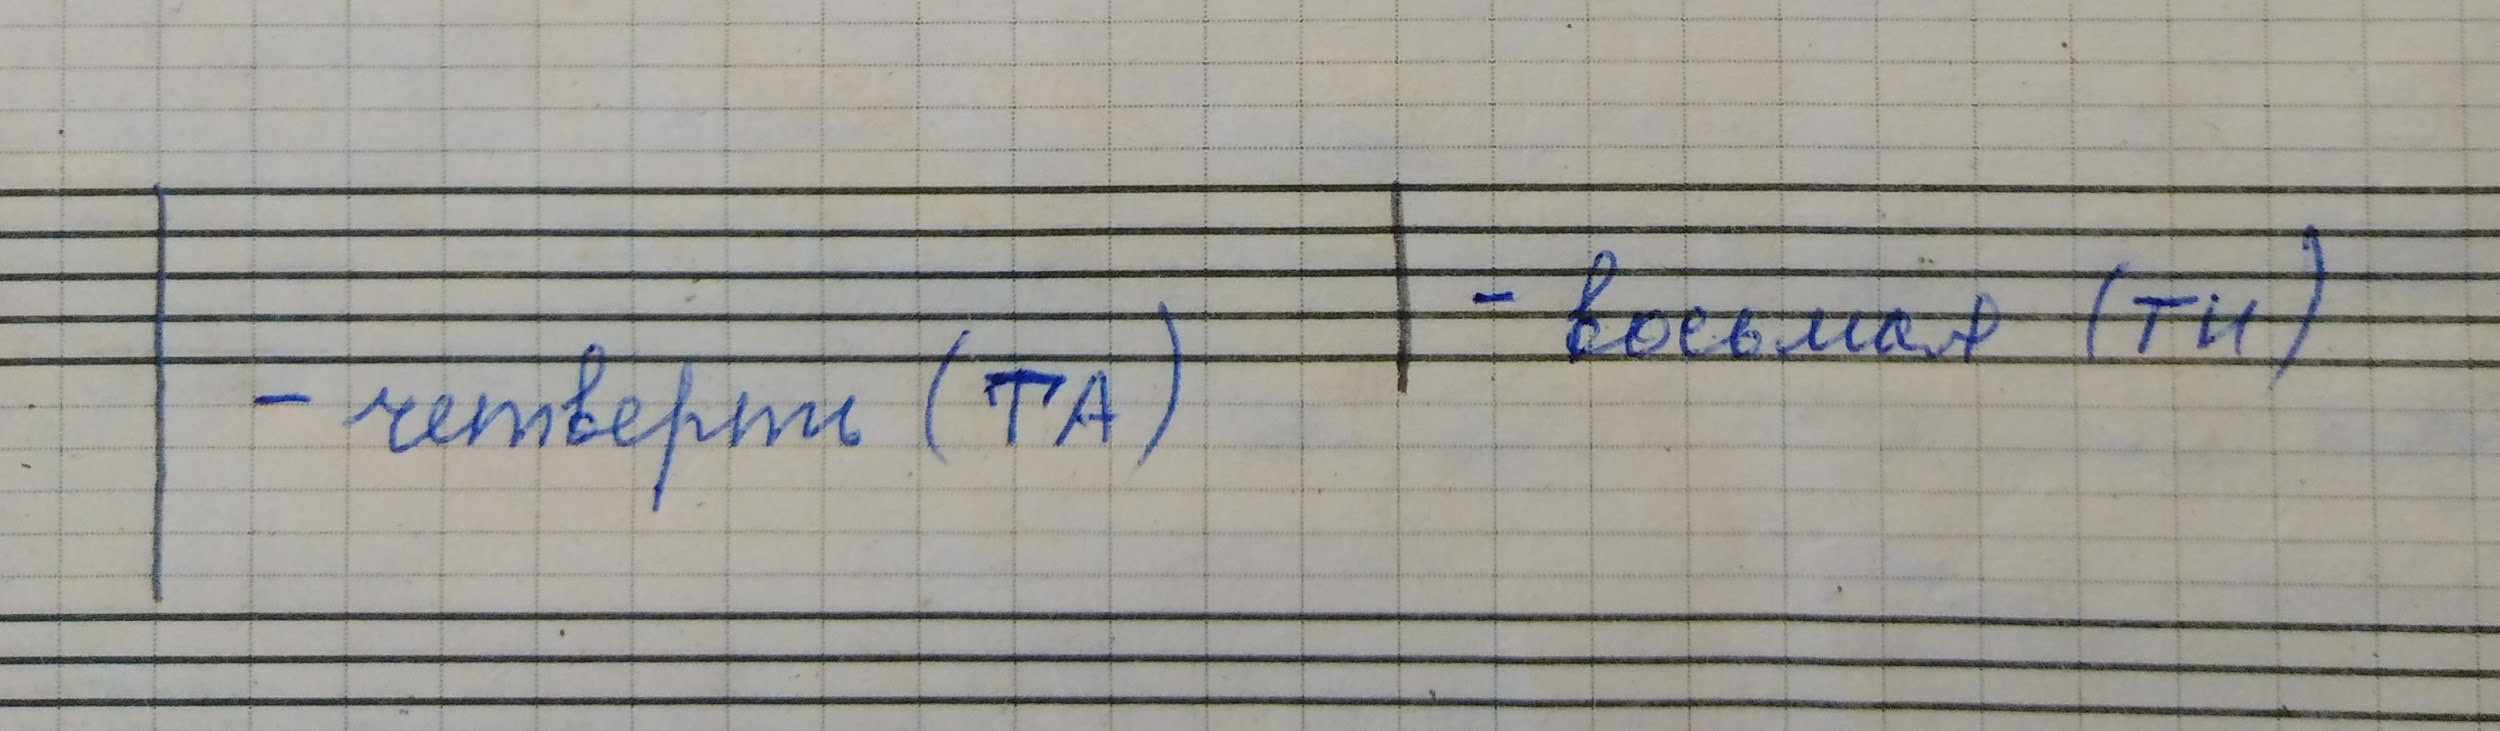 - четверть (ТА)
- восьмая (ТИ)